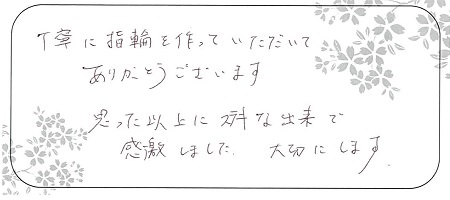 丁寧に指輪を作っていただいて
ありがとうございます
思った以上にステキな出来で
感激しました. 大切にします.